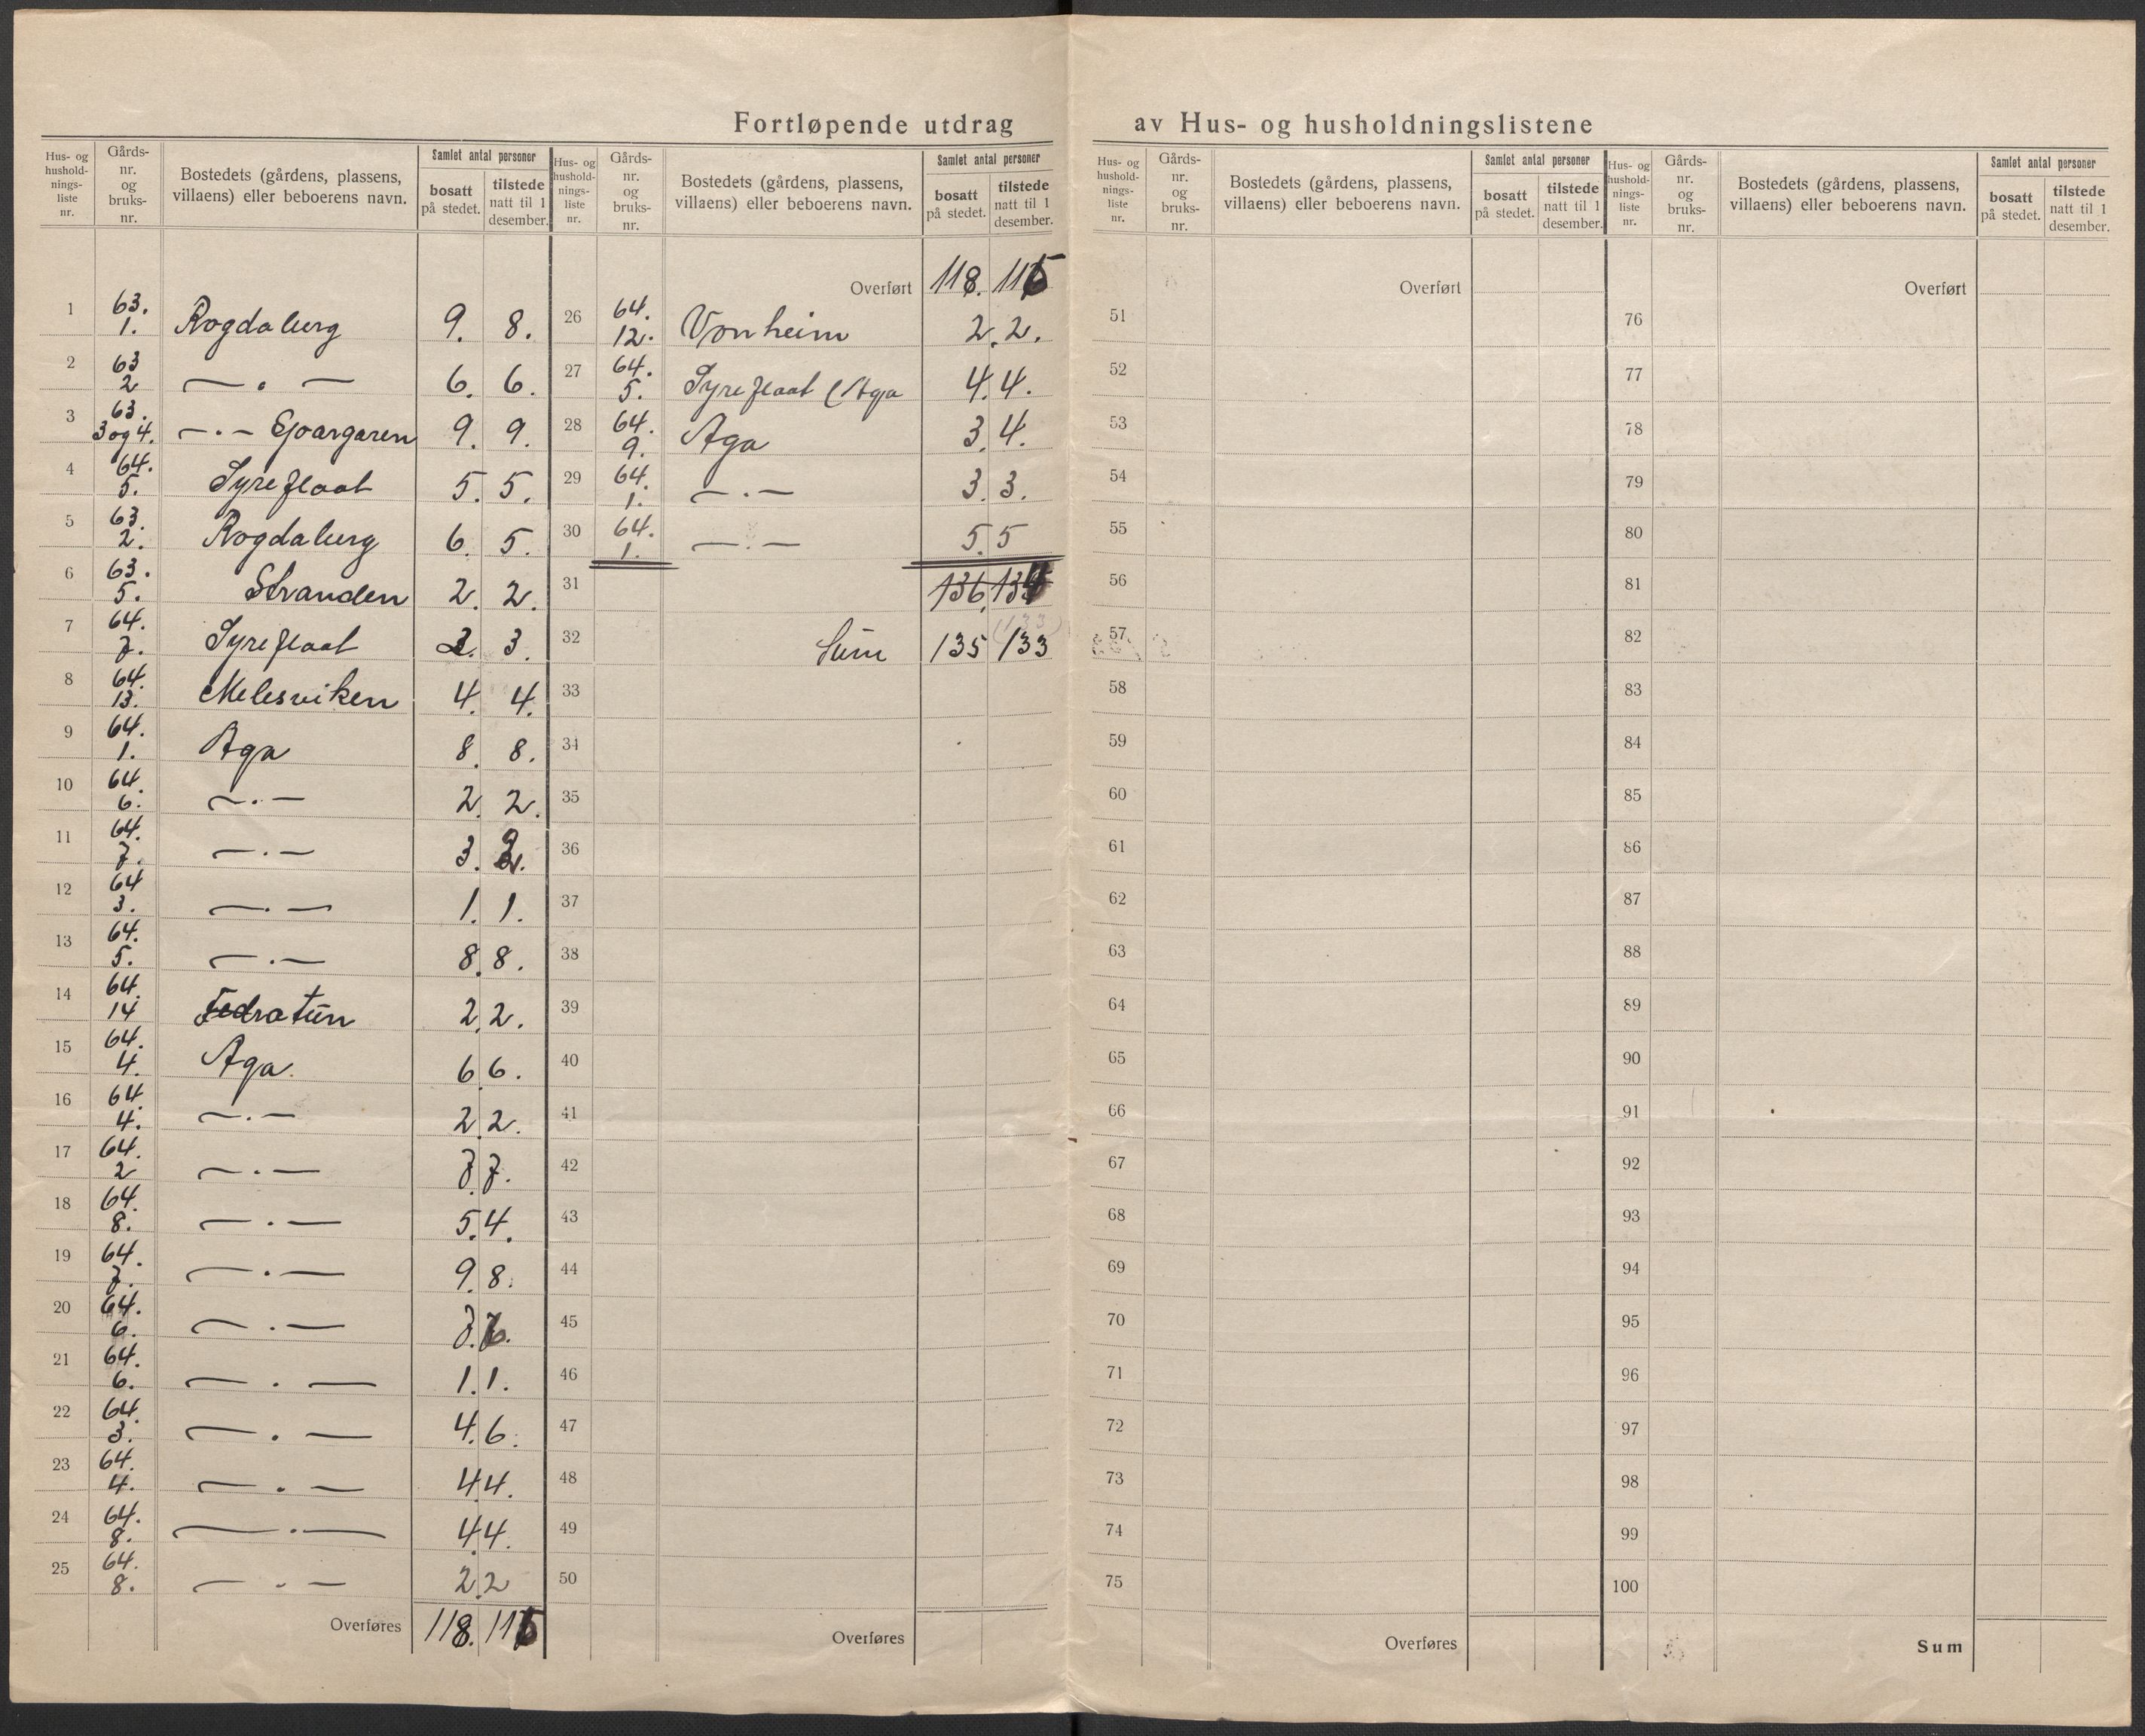 Fortløpende utdrag av Hus- og husholdningslistene
Hus- og hushold-nings-liste nr. Gårds-nr. og bruks-nr. Bostedets (gårdens, plassens, villaens) eller beboerens navn. Samlet antal personer bosatt på stedet. tilstede natt til 1 desember.
1 63. 1. Rogdaberg 9. 8.
2 63 2 — . — 6. 6.
3 63. 3 og 4. — . — Gjoargaren 9. 9.
4 64. 5. Syreflaat 5. 5.
5 63. 2. Rogdaberg 6. 5.
6 63. 5. Stranden 2. 2.
7 64. 7. Syreflaat 3.
8 64. 13. Melesviken 4. 4.
9 64. 1. Aga 8. 8.
10 64. 6. — . — 2. 2.
11 64. 7. — . — 3.
12 64 3. — . — 1. 1.
13 64. 5. — . — 8. 8.
14 64. 14 tun 2. 2.
15 64. 4. Aga. 6. 6.
16 64 4. — . — 2. 2.
17 64. 2 — . — 7. 7.
18 64. 8. — . — 5. 4.
19 64. 7. — . — 9. 8.
20 64. 6. — . — 7.
21 64. 6. — . — 1. 1.
22 64. 3. — . — 4. 6.
23 64. 4. — . — 4 4.
24 64. 8. — . — 4. 4.
25 64. 8. — . — 2. 2
Overføres 118.
Hus- og hushold-nings-liste nr. Gårds-nr. og bruks-nr. Bostedets (gårdens, plassens, villaens) eller beboerens navn. Samlet antal personer bosatt på stedet. tilstede natt til 1 desember.
Overført 118.
26 64. 12. Vonheim 2. 2.
27 64. 5. Syreflaat (Aga 4. 4.
28 64. 9. Aga 3. 4.
29 64. 1. — . — 3. 3.
30 64. 1. — . — 5. 5
31 136.
(133)
32 Sum 135 133
33
34
35
36
37
38
39
40
41
42
43
44
45
46
47
48
49
50
Overføres
Hus- og hushold-nings-liste nr. Gårds-nr. og bruks-nr. Bostedets (gårdens, plassens, villaens) eller beboerens navn. Samlet antal personer bosatt på stedet. tilstede natt til 1 desember.
Overført
51
52
53
54
55
56
57
58
59
60
61
62
63
64
65
66
67
68
69
70
71
72
73
74
75
Overføres
Hus- og hushold-nings-liste nr. Gårds-nr. og bruks-nr. Bostedets (gårdens, plassens, villaens) eller beboerens navn. Samlet antal personer bosatt på stedet. tilstede natt til 1 desember.
Overført
76
77
78
79
80
81
82
83
84
85
86
87
88
89
90
91
92
93
94
95
96
97
98
99
100
Sum